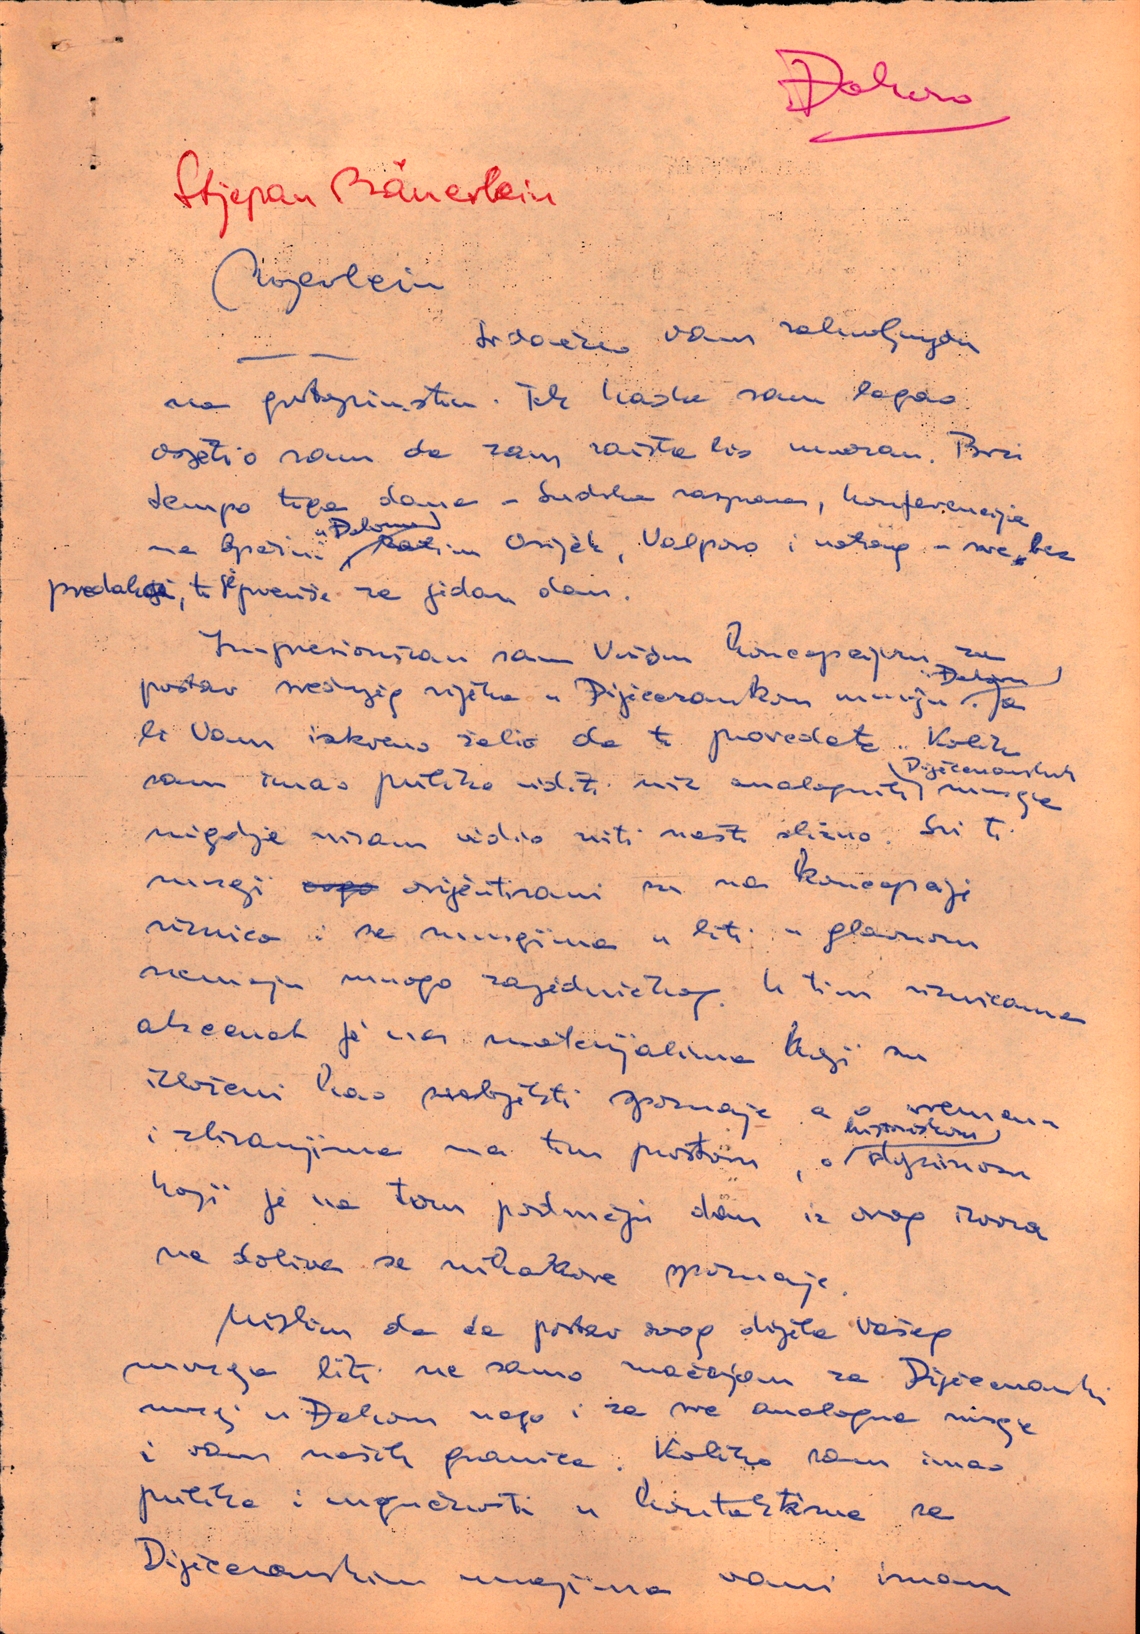 Đakovo
Stjepan Bäuerlein
Bajerlein
Srdačno vam zahvaljujem
na gostoprimstvu. Tek kada sam legao
osjetio sam da sam zaista bio umoran. Brzi
tempo toga dana - sudska rasprava, konferencija
na općini u Đakovu, zatim Osijek, Valpovo i natrag - sve "bez
predaha", to je previše za jedan dan.
Impresioniran sam Vašom koncepcijom za
postav srednjeg vijeka u Dijecezanskom muzeju u Đakovu. Ja
bi Vam iskreno želio da to provedete. Koliko
sam imao prilike vidjeti niz analognih Dijecezanskih muzeja
nigdje nisam vidio niti nešto slično. Svi ti
muzeji orijentirani su na koncepciji
riznica i sa muzejima u biti u glavnom
nemaju mnogo zajedničkog. U tim riznicama
akcenat je na materijalima koji su
izloženi kao objekti spoznaje a o vremenu
i zbivanjima na tom prostoru, o historiskom
koji je na tom području dan iz ovog izvora
ne dobiva se nikakove spoznaje.
Mislim da će postav ovog dijela Vašeg
muzeja biti ne samo značajan za Dijecezanski
muzej u Đakovu nego i za sve analogne muzeje
i van naših granica. Koliko sam imao
prilike i mogućnosti u kontaktima sa
Dijecezanskim muzejima vani imam